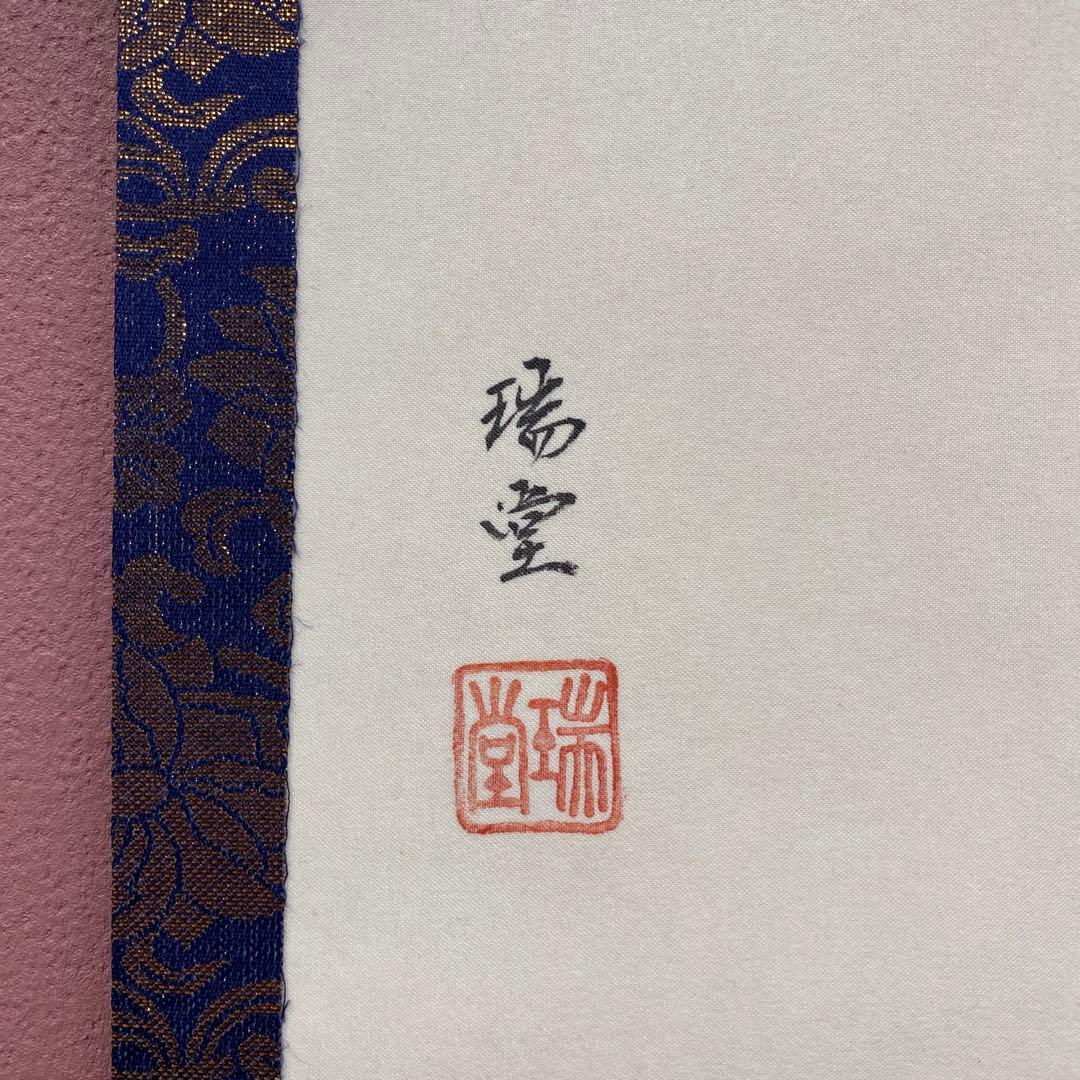 瑞堂
瑞堂